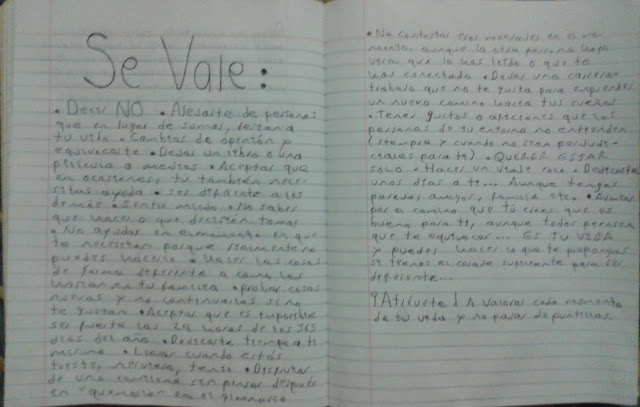 Se Vale:
• Decir NO • Alejarte de personas
que en lugar de sumar, restan a
tu vida • Cambiar de opinión y
equivocarte • Dejar un libro o una
película a medias • Aceptar que
en ocasiones, tu también nece-
sitas ayuda • Ser diferente a los
demás • Sentir miedo • No saber
que hacer o que decisión tomar
• No ayudar en el momento en que
te necesitan porque realmente no
puedes hacerlo • Hacer las cosas
de forma diferente a como las
harían en tu familia • probar cosas
nuevas y no continuarlas si no
te gustan • Aceptar que es imposible
ser fuerte las 24 horas de los 365
días del año • Dedicarte tiempo a ti
mismo • Llorar cuando estás
triste, nervioso, tenso • Disfrutar
de una comilona sin pensar después
en "quemarlo en el gimnasio
• No contestar esos mensajes en el mo-
mento, aunque la otra persona haya
visto que lo has leído o que te
has conectado • Dejar una carrera
trabajo que no te gusta para emprender
un nuevo camino hacia tus sueños
• Tener gustos o aficiones que las
personas de tu entorno no entienden
(siempre y cuando no sean perjudi-
ciales para ti) • QUERER ESTAR
solo • Hacer un viaje • Dedicarte
unos días a ti... Aunque tengas
pareja, amigos, familia etc. • Avanzar
por el camino que tú crees que es
bueno para ti, aunque todos piensen
que te equivocas... ES TU VIDA
y puedes hacer lo que te propongas
si tienes el coraje suficiente para ser
diferente...
¡Atrévete! A valorar cada momento
de tu vida y no pasar de puntillas.